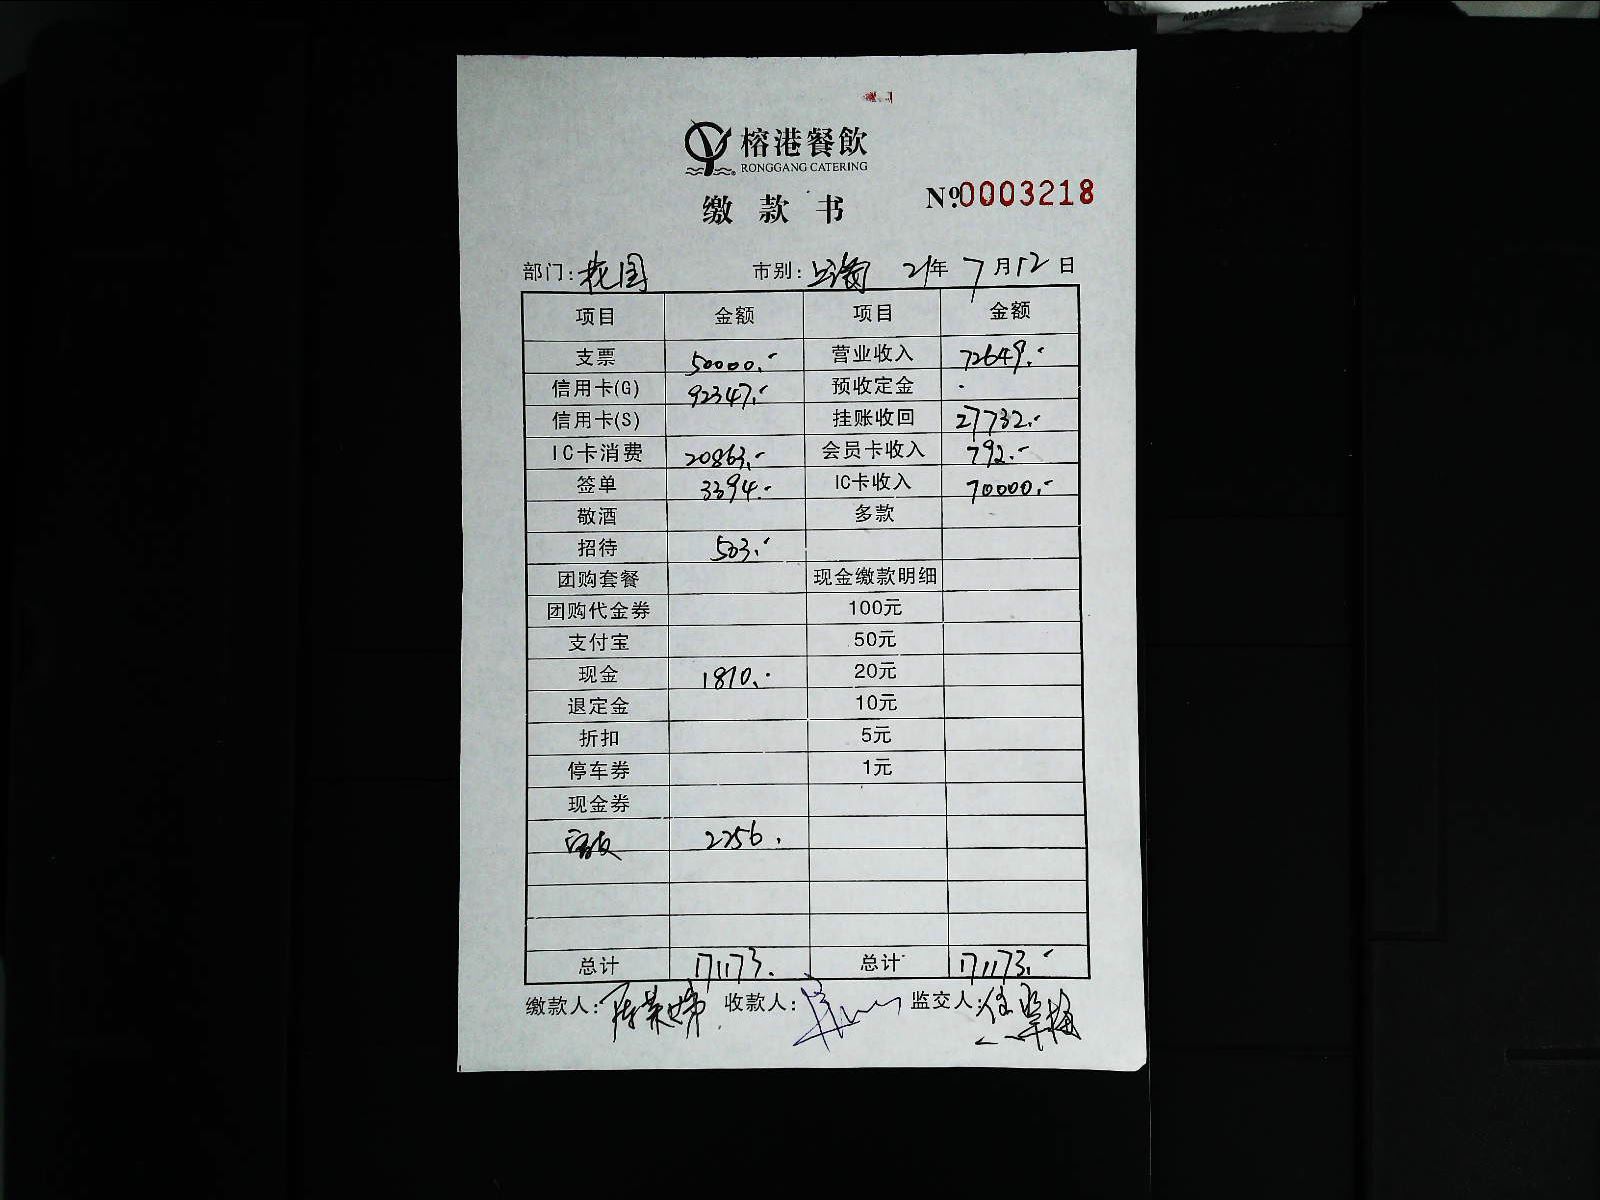 榕港餐飲
RONGGANG CATERING
缴款书 №0003218
部门: 花园 市别: 上海 21年 7月12日
项目 金额 项目 金额
支票 50000.- 营业收入 72649.-
信用卡(G) 92347.- 预收定金
信用卡(S) 挂账收回 27732.-
IC卡消费 20863.- 会员卡收入 792.-
签单 3394.- IC卡收入 70000.-
敬酒 多款
招待 503.-
团购套餐 现金缴款明细
团购代金券 100元
支付宝 50元
现金 1810.- 20元
退定金 10元
折扣 5元
停车券 1元
现金券
2256.
总计 171173. 总计 171173.-
缴款人: 陈荣娣 收款人: 监交人: